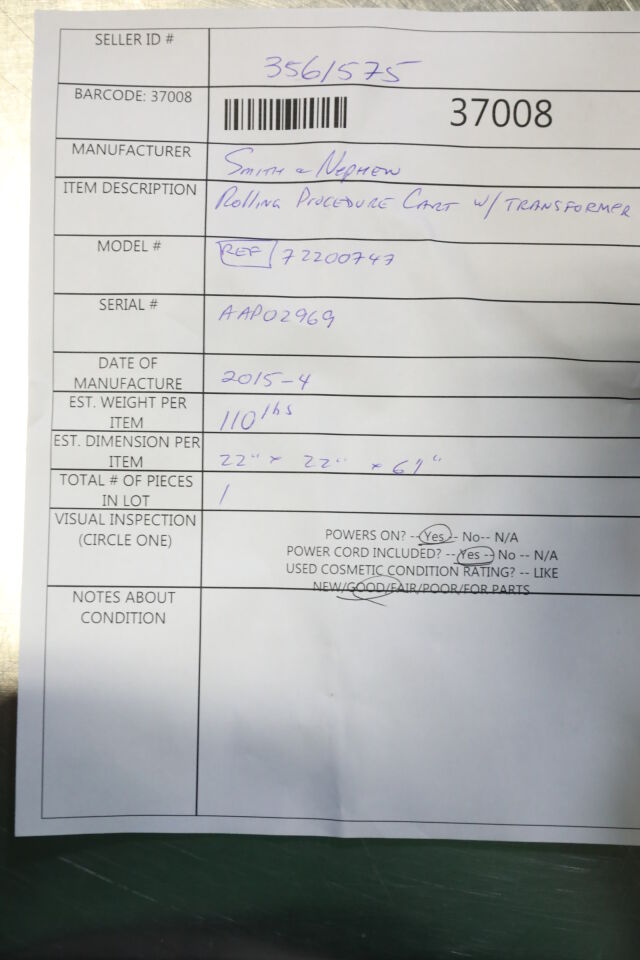 SELLER ID #
3561575
BARCODE: 37008
37008
MANUFACTURER
Smith & Nephew
ITEM DESCRIPTION
Rolling Procedure Cart w/ Transformer
MODEL #
REF 72200747
SERIAL #
AAP02969
DATE OF
MANUFACTURE
2015-4
EST. WEIGHT PER
ITEM
110 lbs
EST. DIMENSION PER
ITEM
22" x 22" x
TOTAL # OF PIECES
IN LOT
1
VISUAL INSPECTION
(CIRCLE ONE)
POWERS ON? -- Yes -- No-- N/A
POWER CORD INCLUDED? -- Yes -- No -- N/A
USED COSMETIC CONDITION RATING? -- LIKE
NEW/GOOD/FAIR/POOR/FOR PARTS
NOTES ABOUT
CONDITION